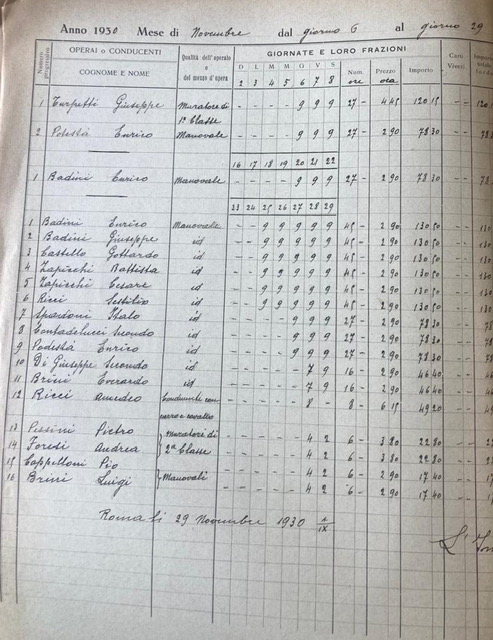 Anno 1930 Mese di Novembre dal giorno 6 al giorno 29
Numero progressivo OPERAI o CONDUCENTI Qualità dell'operaio o del mezzo d'opera GIORNATE E LORO FRAZIONI Caro Viveri
COGNOME E NOME D L M M G V S Num. ore Prezzo ora Importo
2 3 4 5 6 7 8
1 Turpetti Giuseppe Muratore di 1ª Classe - - - - 9 9 9 27 - 4 45 120 15 - - 120
2 Podestà Enrico Manovale - - - - 9 9 9 27 - 2 90 78 30 - - 78
16 17 18 19 20 21 22
1 Badini Enrico Manovale - - - - 9 9 9 27 - 2 90 78 30 - - 78
23 24 25 26 27 28 29
1 Badini Enrico Manovale - - 9 9 9 9 9 45 - 2 90 130 50 - - 130
2 Badini Giuseppe id - - 9 9 9 9 9 45 - 2 90 130 50 - - 130
3 Castello Gottardo id - - 9 9 9 9 9 45 - 2 90 130 50 - - 130
4 Zapicchi Battista id - - 9 9 9 9 9 45 - 2 90 130 50 - - 130
5 Zapicchi Cesare id - - 9 9 9 9 9 45 - 2 90 130 50 - - 130
6 Ricci Sestilio id - - 9 9 9 9 9 45 - 2 90 130 50 - - 130
7 Spadoni Italo id - - - - 9 9 9 27 - 2 90 78 30 - - 78
8 Contadelucci Secondo id - - - - 9 9 9 27 - 2 90 78 30 - - 78
9 Podestà Enrico id - - - - 9 9 9 27 - 2 90 78 30 - - 78
10 Di Giuseppe Secondo id - - - - - 7 9 16 - 2 90 46 40 - - 46
11 Brini Everardo id - - - - - 7 9 16 - 2 90 46 40 - - 46
12 Ricci Amedeo Conducente con carro e cavallo - - - - - 8 - 8 - 6 15 49 20 - - 49
13 Pissini Pietro Muratori di 2ª Classe - - - - - 4 2 6 - 3 80 22 80 - -
14 Foresi Andrea - - - - - 4 2 6 - 3 80 22 80 - -
15 Cappelloni Pio Manovali - - - - - 4 2 6 - 2 90 17 40 - -
16 Brini Luigi - - - - - 4 2 6 - 2 90 17 40 - -
Roma li 29 Novembre 1930 IX